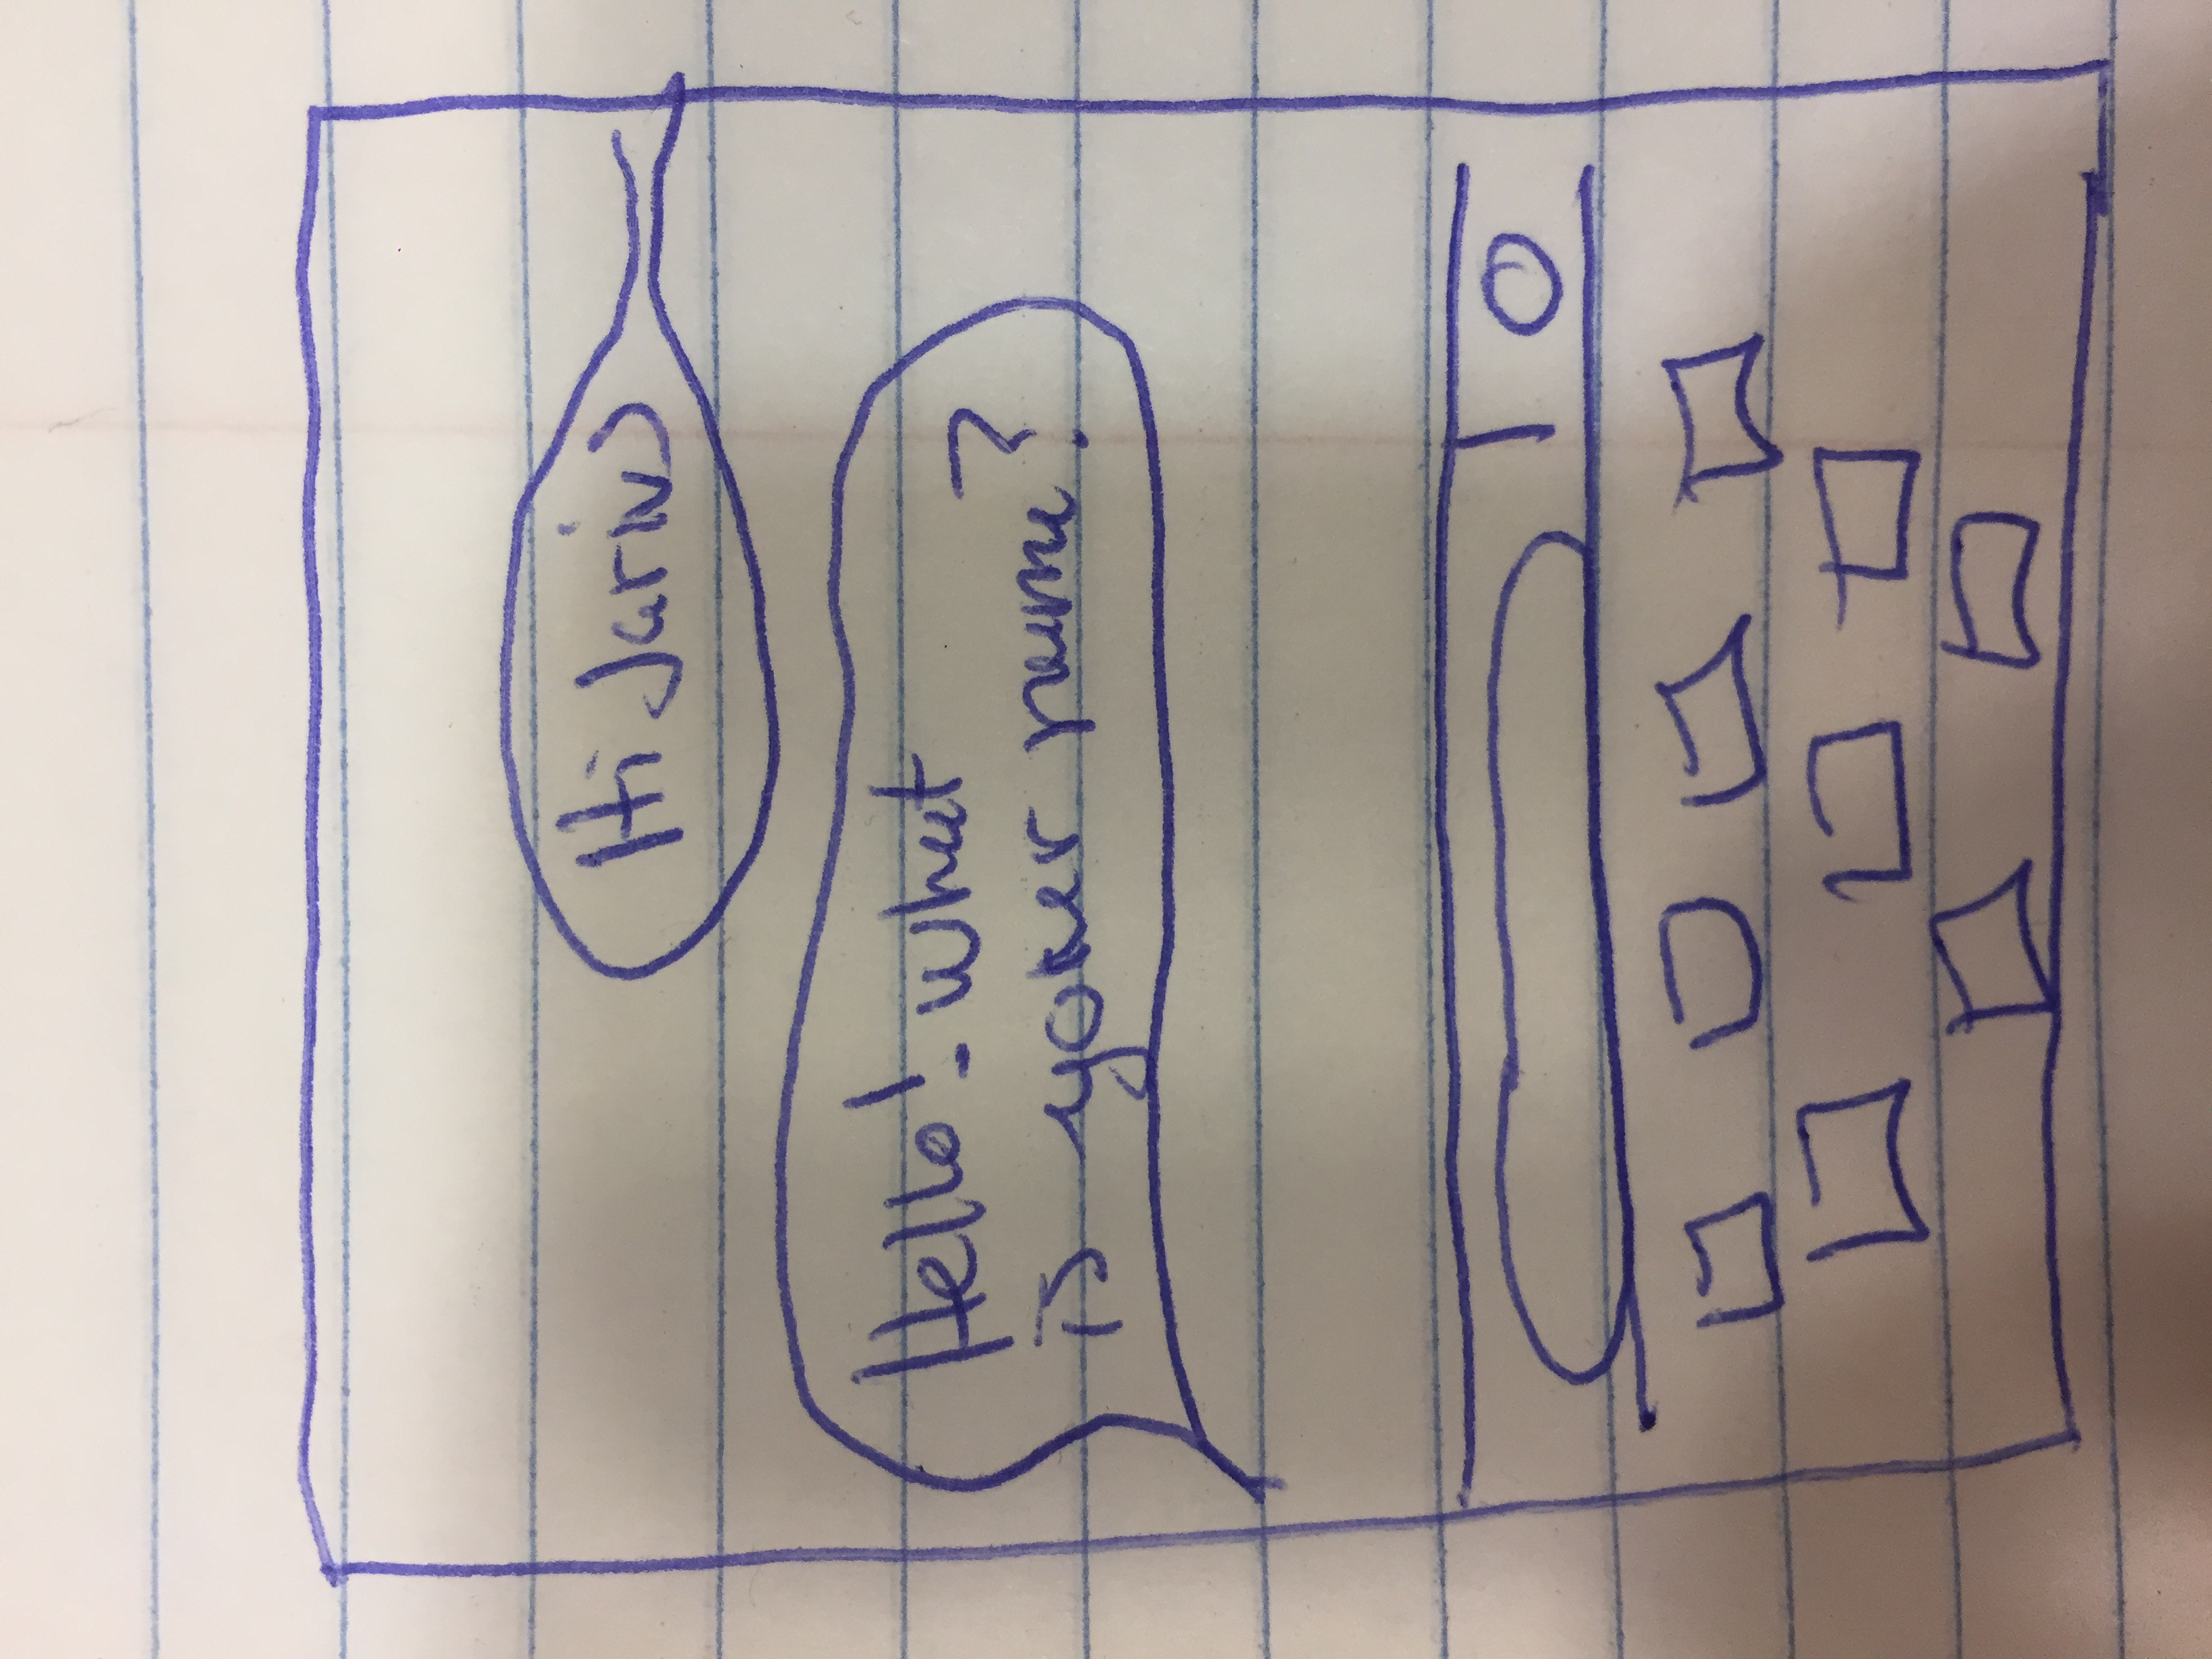 Hi Jarius
Hello! What
is your name?